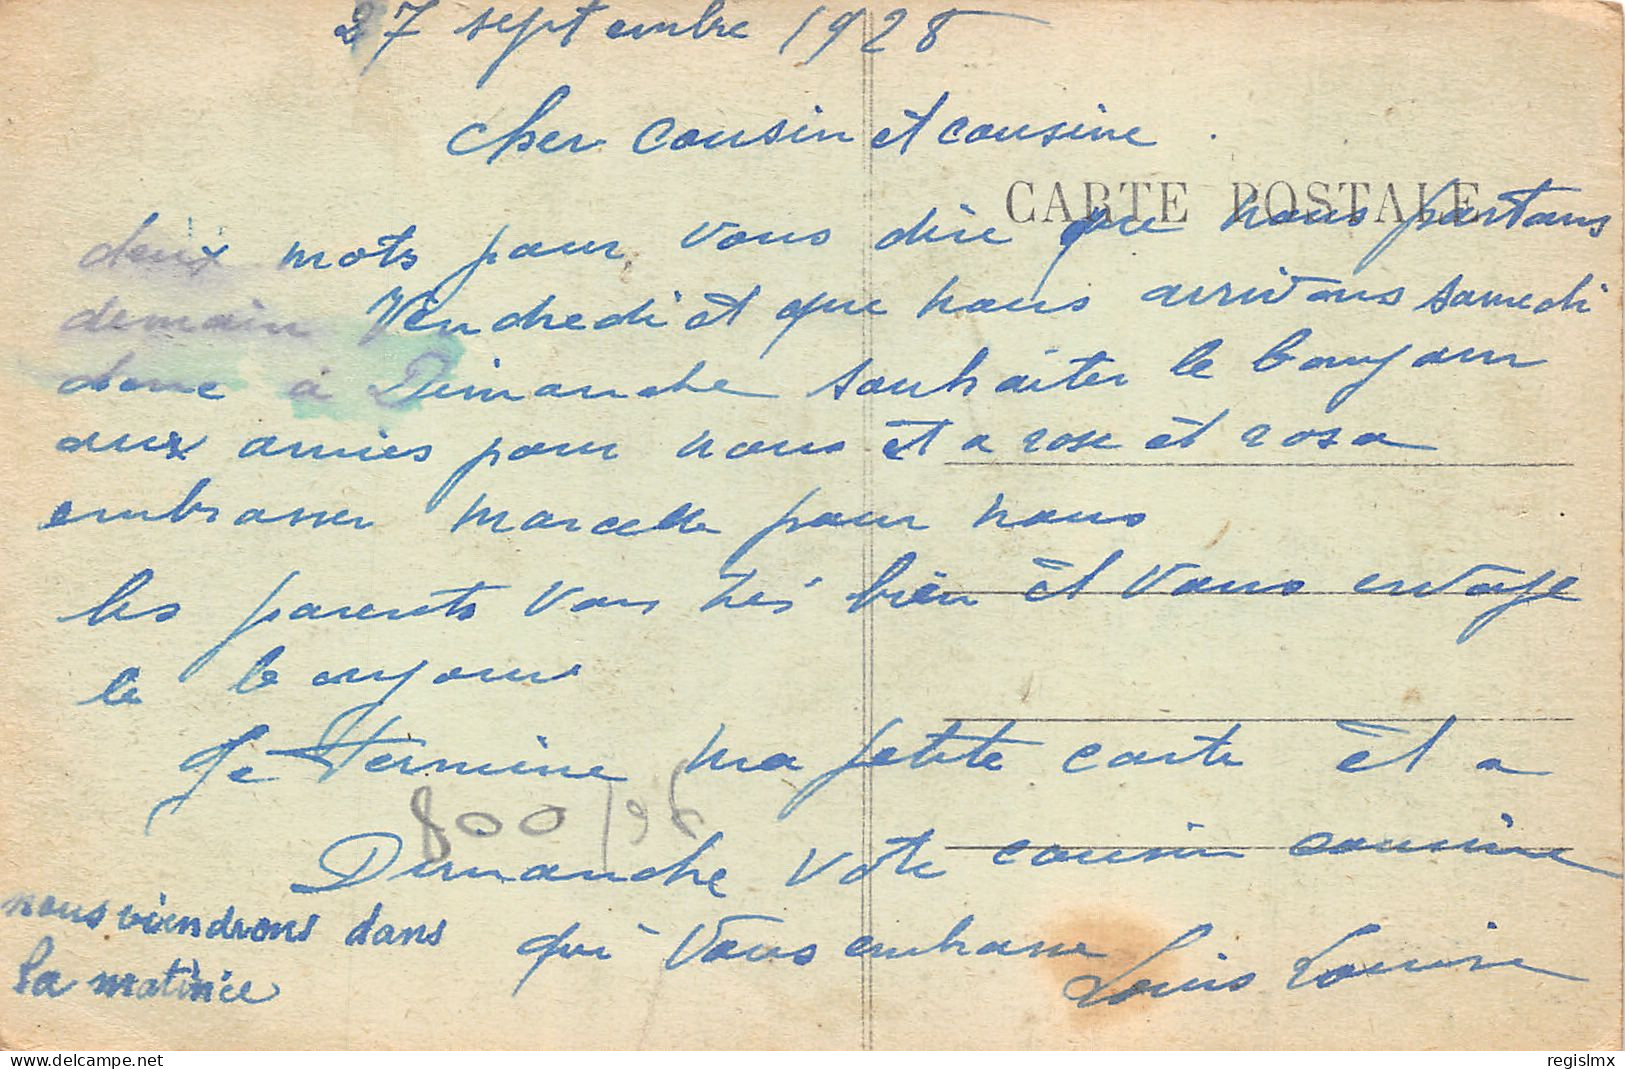 27 septembre 1928
Cher cousin et cousine
CARTE POSTALE
deux mots pour vous dire que nous partons
demain Vendredi et que nous arrivons samedi
donc à Dimanche souhaiter le bonjour
aux amies pour nous et a rose et rosa
embrasser marcelle pour nous
les parents vont très bien et vous envoye
le bonjour
Je termine ma petite carte et a
800
Dimanche votre cousin cousine
nous viendrons dans
la matinée
qui vous embrasse
Louis Louise
regislmx